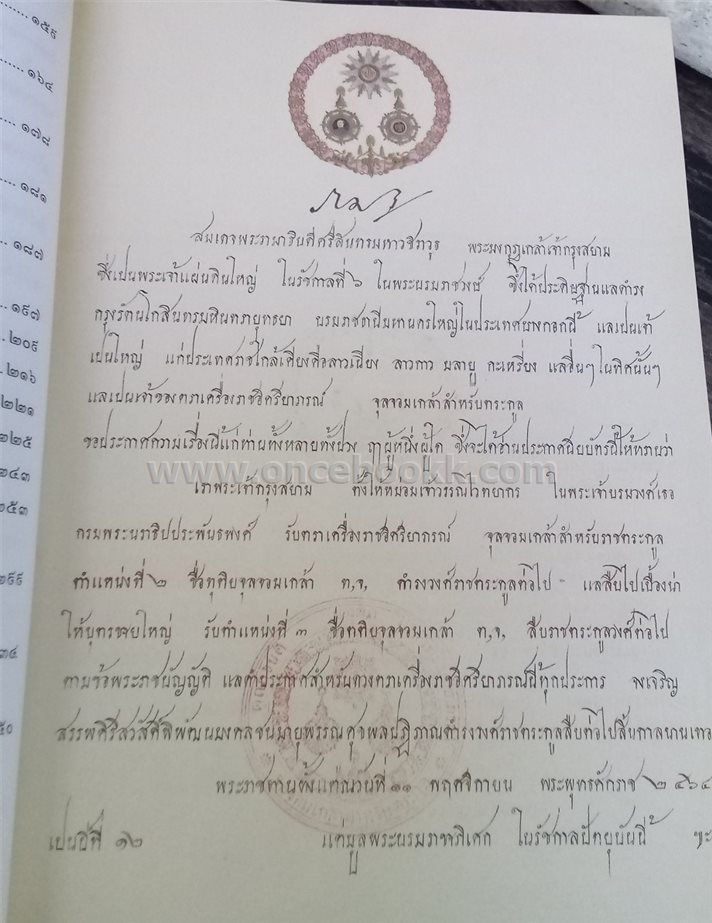 ๑๕๙
๑๖๔
๑๗๘
๑๘๑
๑๘๗
๑๙๗
๒๐๙
๒๑๖
๒๒๑
๒๒๕
๒๔๓
๒๕๓
๒๙๙
สมเดจพระรามาธิบดีศรีสินทรมหาวชิราวุธ พระมงกุฎเกล้าเจ้ากรุงสยาม
ซึ่งเปนพระเจ้าแผ่นดินใหญ่ ในรัชกาลที่ ๖ ในพระบรมราชวงษ์ ซึ่งได้ประดิษฐานแลดำรง
กรุงรัตนโกสินทรมหินทรายุทธยา บรมราชธานีมหานครใหญ่ในประเทศบางกอกนี้ แลเปนเจ้า
เปนใหญ่ แก่ประเทศราชใกล้เคียงคือลาวเฉียง ลาวกาว มลายู กะเหรี่ยง แลอื่นๆ ในทิศนั้นๆ
แลเปนเจ้าของตราเครื่องราชอิศริยาภรณ์ จุลจอมเกล้าสำหรับตระกูล
ขอประกาศความเรื่องนี้แก่ท่านทั้งหลายทั้งปวง ฤาผู้หนึ่งผู้ใด ซึ่งจะได้อ่านประกาศนิยบัตรนี้ให้ทราบว่า
www.oncebookk.com
เราพระเจ้ากรุงสยาม ตั้งให้หม่อมเจ้าวรรณไวทยากร ในพระเจ้าบรมวงศ์เธอ
กรมพระนราธิปประพันธพงศ์ รับตราเครื่องราชอิศริยาภรณ์ จุลจอมเกล้าสำหรับราชตระกูล
ตำแหน่งที่ ๒ ชื่อทุติยจุลจอมเกล้า ท,จ, ดำรงวงศ์ราชตระกูลต่อไป แลสืบไปเบื้องน่า
ให้บุตรชายใหญ่ รับตำแหน่งที่ ๓ ชื่อตติยจุลจอมเกล้า ต,จ, สืบราชตระกูลวงศ์ต่อไป
ตามข้อพระราชบัญญัติ แลคำประกาศสำหรับดวงตราเครื่องราชอิศริยาภรณ์นี้ทุกประการ จงเจริญ
สรรพศิริสวัสดิพิพัฒนมงคลชนมายุพรรณศุขพลปฏิภาณดำรงวงศ์ราชตระกูลสืบต่อไปสิ้นกาลนานเทอ
พระราชทานตั้งแต่ณวันที่ ๑๑ พฤศจิกายน พระพุทธศักราช ๒๔๖๔
เปนปีที่ ๑๒ แต่มูลพระบรมราชาภิเศก ในรัชกาลปัตยุบันนี้